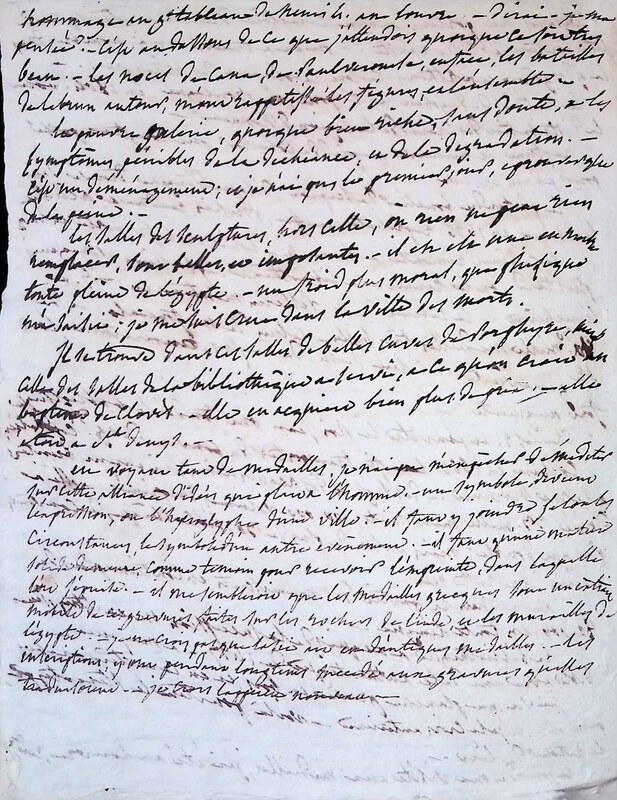 hommage au gd tableau de au louvre. - dirai-je ma
pensée. - c'est au dessous de ce que j'attendois quoique ce soit très
beau. - les noces de Cana, de Paul veronese, entrée, les batailles
de lebrun autour, m'ont rappetissé les figures, et l'ensemble -
la pauvre galerie, quoique bien riche, sans doute, a les
symptômes pénibles de la déchéance, et de la dégradation. -
c'est un déménagement; et je n'ai que le premier jour, éprouvé que
de la peine. -
Les salles des sculptures, hors celle, où rien ne peut rien
remplacer, sont belles, et imposantes. - il en est une
toute pleine de l'égypte - un froid plus moral, que phisique
m'a saisie; je me suis crue dans la ville des morts.
Il se trouve dans ces salles de belles cuves de Porphyre,
celle des salles de la bibliothèque a servi, a ce qu'on croit au
baptême de Clovis. - elle en acquiert bien plus de prix. - elle
étoit a St. denys. -
en voyant tant de medailles, je n'ai pu m'empêcher de méditer
sur cette alliance d'idées qui plait a l'homme. - un symbole, devient
l'expression, ou l'hyeroglyphe d'une ville. - il faut y joindre selon les
circonstances, le symbole d'un autre événement. - il faut qu'une matière
solide demeure, comme temoin pour recevoir l'empreinte, dans laquelle
l'esprit. - il me sembleroit que les medailles grecques sont un
mobile de ces gravures faites sur les rochers de l'inde, et les murailles de
l'égypte. - je ne crois pas que l'asie ait eu d'antiques medailles. - les
inscriptions, y ont pendant longtems succédé aux gravures qu'elles
- je crois nouveau -